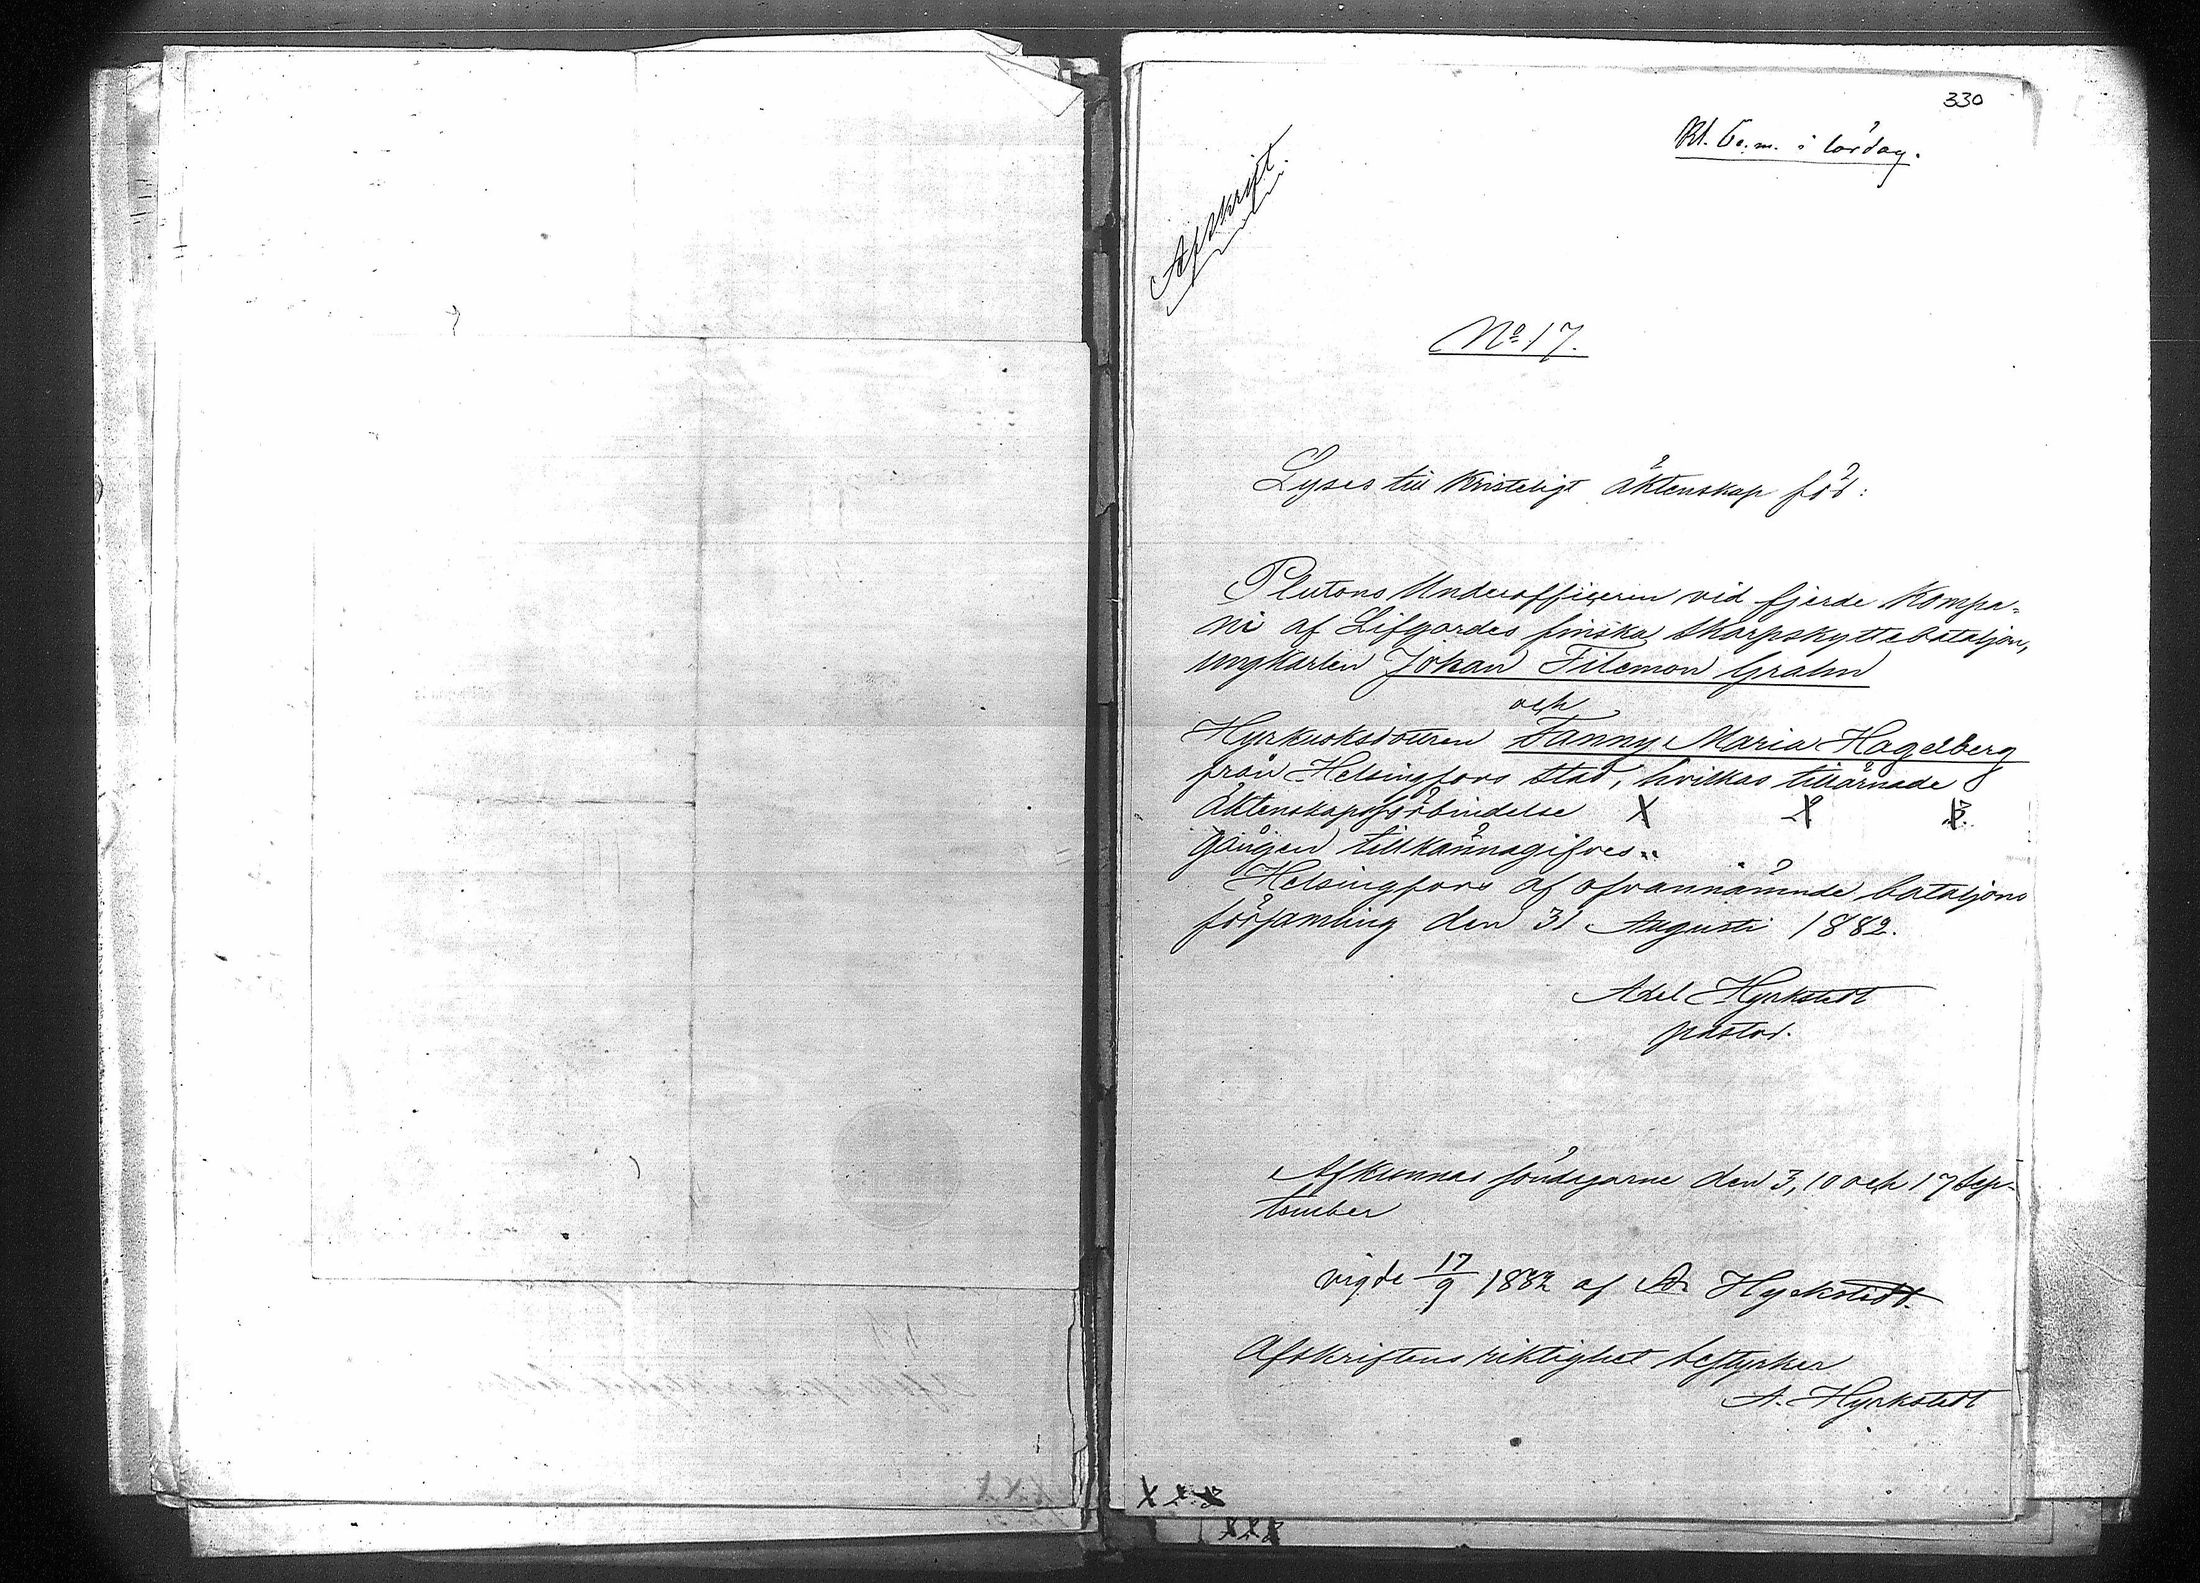 330
Kl. 6 e.m. i lördag.
Afskrift.
No 17.
Lyses till Kristeligt äktenskap för:
Plutons Underofficeren vid fjerde Kompa-
ni af Lifgardes finska Skarpskyttebataljon,
ungkarlen Johan Filemon Grahn
och
Hyrkusksdottren Fanny Maria Hagelberg
från Helsingfors stad, hvilkas tillärnade
äktenskapsförbindelse X X X
gången tillkännagifves.
Helsingfors af ofvannämnde bataljons
församling den 31 Augusti 1882.
Axel Hyrkstedt
pastor.
Afkunnas söndagarne den 3, 10 och 17 Sep-
tember
vigde 17/9 1882 af A. Hyrkstedt.
Afskriftens riktighet bestyrker
A. Hyrkstedt
X X X
X X X